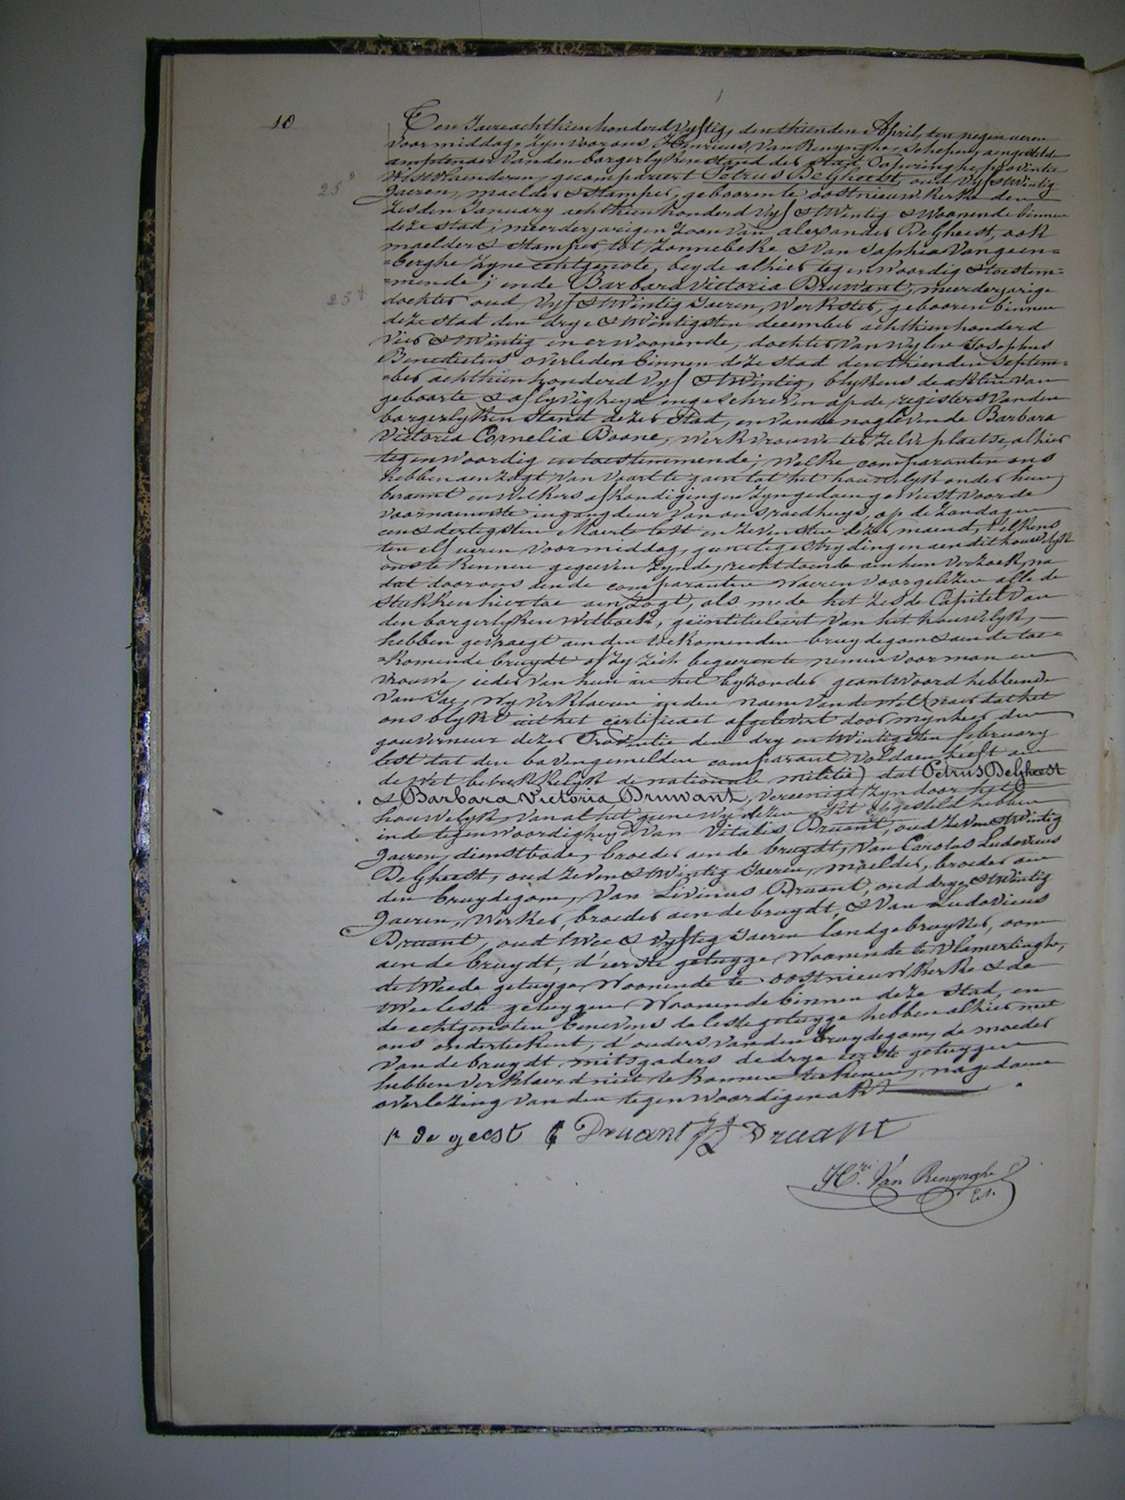 10
Ten Jaere achthien honderd vyftig, den thienden April, ten negen ueren
voormiddag, zyn voor ons Henricus Van Renynghe, Schepen, aengestelde
amptenaer van den borgerlyken stand der stad Poperinghe, provintie
Westvlaenderen, gecompareert Petrus DeGheest, oud vyf & twintig
25
Jaeren, maelder & stamper, gebooren te oostnieuwkerke den
zesden January achthien honderd vyf & twintig & woonende binnen
deze stad, meerderjarigen zoon van alexander DeGheest, ook
maelder & stamper tot Zonnebeke & van Sophia Vangeen=
=berghe zyne echtgenote, beyde alhier tegenwoordig & toestem=
=mende; ende Barbara Victoria Druwant, meerderjarige
25
dochter oud vyf & twintig Jaeren, werkster, gebooren binnen
deze stad den drye & twintigsten december achthien honderd
vier & twintig en er woonende, dochter van wylen Josephus
Benedictus overleden binnen deze stad den thienden Septem=
=ber achthien honderd vyf & twintig, blykens de akten van
geboorte & aflyvigheyd ingeschreven op de registers van den
borgerlyken stand dezer stad, en van de nog levende Barbara
Victoria Cornelia Boone, werkvrouwe ter zelve plaetse, alhier
tegenwoordig en toestemmende; welke comparanten ons
hebben aenzogt van voort te gaen tot het houwelyk onder hun
beraemt en welkers afkondigingen zyn gedaen geweest voor de
voornaemste ingangdeur van ons raedhuys, op de zondagen
een & dertigsten Maerte lest en zevensten dezer maend, telkens
ten elf ueren voormiddag, geenelege strydingen aen dit houwelyk
ons te kennen gegeven zynde, recht doende aen hun verzoek, na
dat door ons aen de comparanten waeren voorgelezen alle de
stukken hiertoe aenzogt, als mede het zesde Capitel van
den borgerlyken wetboek, geïntituleert van het houwelyk,
hebben gevraegt aen den toekomenden bruydegom & aen de toe=
=komende bruydt of zy zich begeeren te nemen voor man en
vrouwe, ieder van hun in het byzonder geantwoord hebbende
van Ja; wy verklaeren in den naem van de wet (naer dat het
ons blykt uit het certificaet afgelevert door mynheer den
gouverneur dezer Provintie den dry en twintigsten february
lest dat den bovengemelden comparant voldaen heeft aen
de wet betrekkelyk de nationale militie) dat Petrus DeGheest
& Barbara Victoria Druwant, vereenigt zyn door het
houwelyk van al het geene wy dezen akt opgesteld hebben
in de tegenwoordigheyd van Vitalis Druant, oud zeven & twintig
Jaeren, dienstbode, broeder aen de bruydt, van Carolus Ludovicus
DeGheest, oud zeven & twintig Jaeren, maelder, broeder aen
den bruydegom, van Livinus Druant, oud drye & twintig
Jaeren, werker, broeder aen de bruydt, & van Ludovicus
Druant, oud twee & vyftig Jaeren landgebruyker, oom
aen de bruydt, d'eerste getuyge woonende te Vlamertinghe,
de tweede getuyge woonende te oostnieuwkerke & de
twee leste getuygen woonende binnen deze stad, en
de echtgenoten benevens de leste getuyge hebben alhier met
ons onderteekent, d'ouders van den bruydegom, de moeder
van de bruydt mitsgaders de drye eerste getuygen
hebben verklaerd niet te konnen teekenen, na gedaene
overlezing van den tegenwoordigen akt
P De geest Druant Druant
Hri Van Renynghe